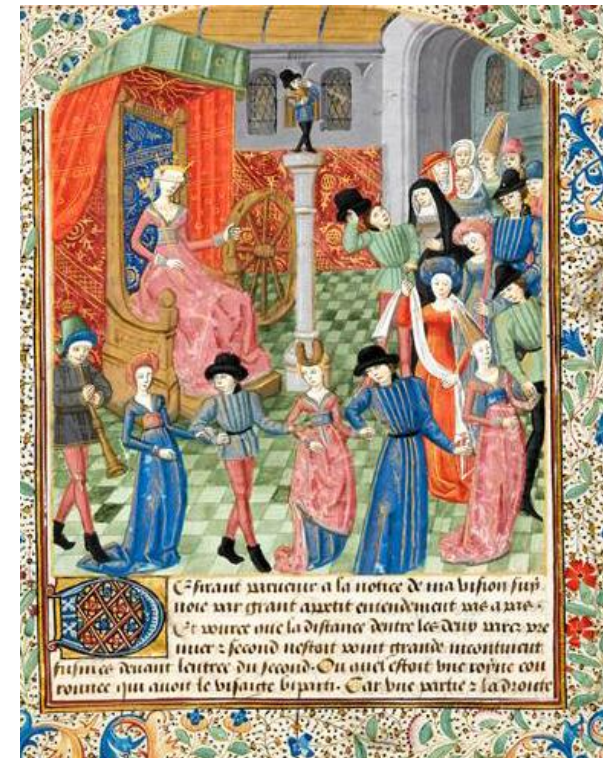 Esirant paruenir a la notice de ma vision suy
uoie par grant appetit entendement pas a pas.
Et pource que la distance dentre les deux parcz pre
mier z second nestoit point grande incontinent
fusmes deuant lentree du second. Ou quel estoit vne royne cou
ronnee qui auoit le visaige biparti. Car vne partie z la droite